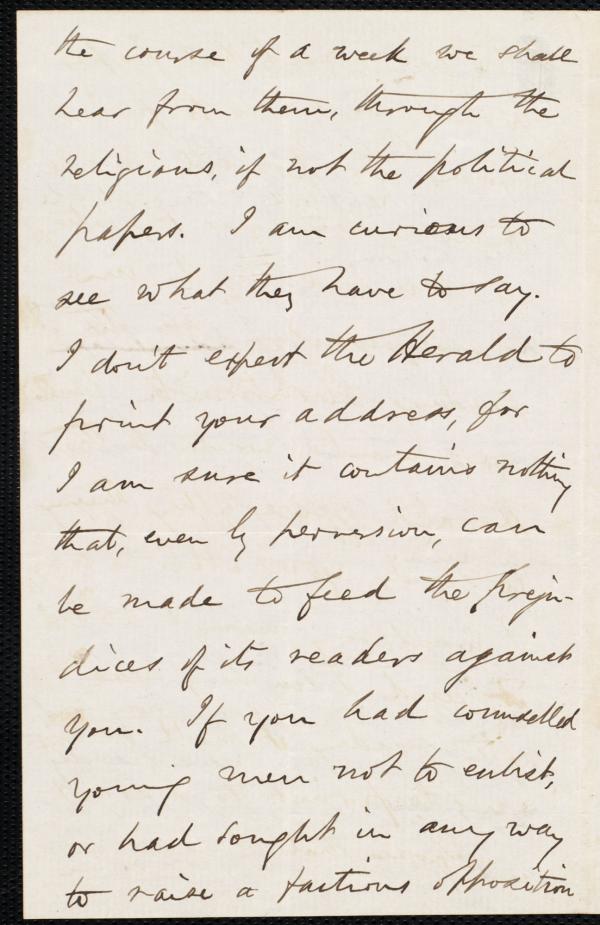 the course of a week we shall
hear from them, through the
religious, if not the political
papers. I am curious to
see what they have to say.
I don't expect the Herald to
print your address, for
I am sure it contains nothing
that, even by perversion, can
be made to feed the preju-
dices of its readers against
you. If you had counselled
young men not to enlist,
or had sought in any way
to raise a factious opposition